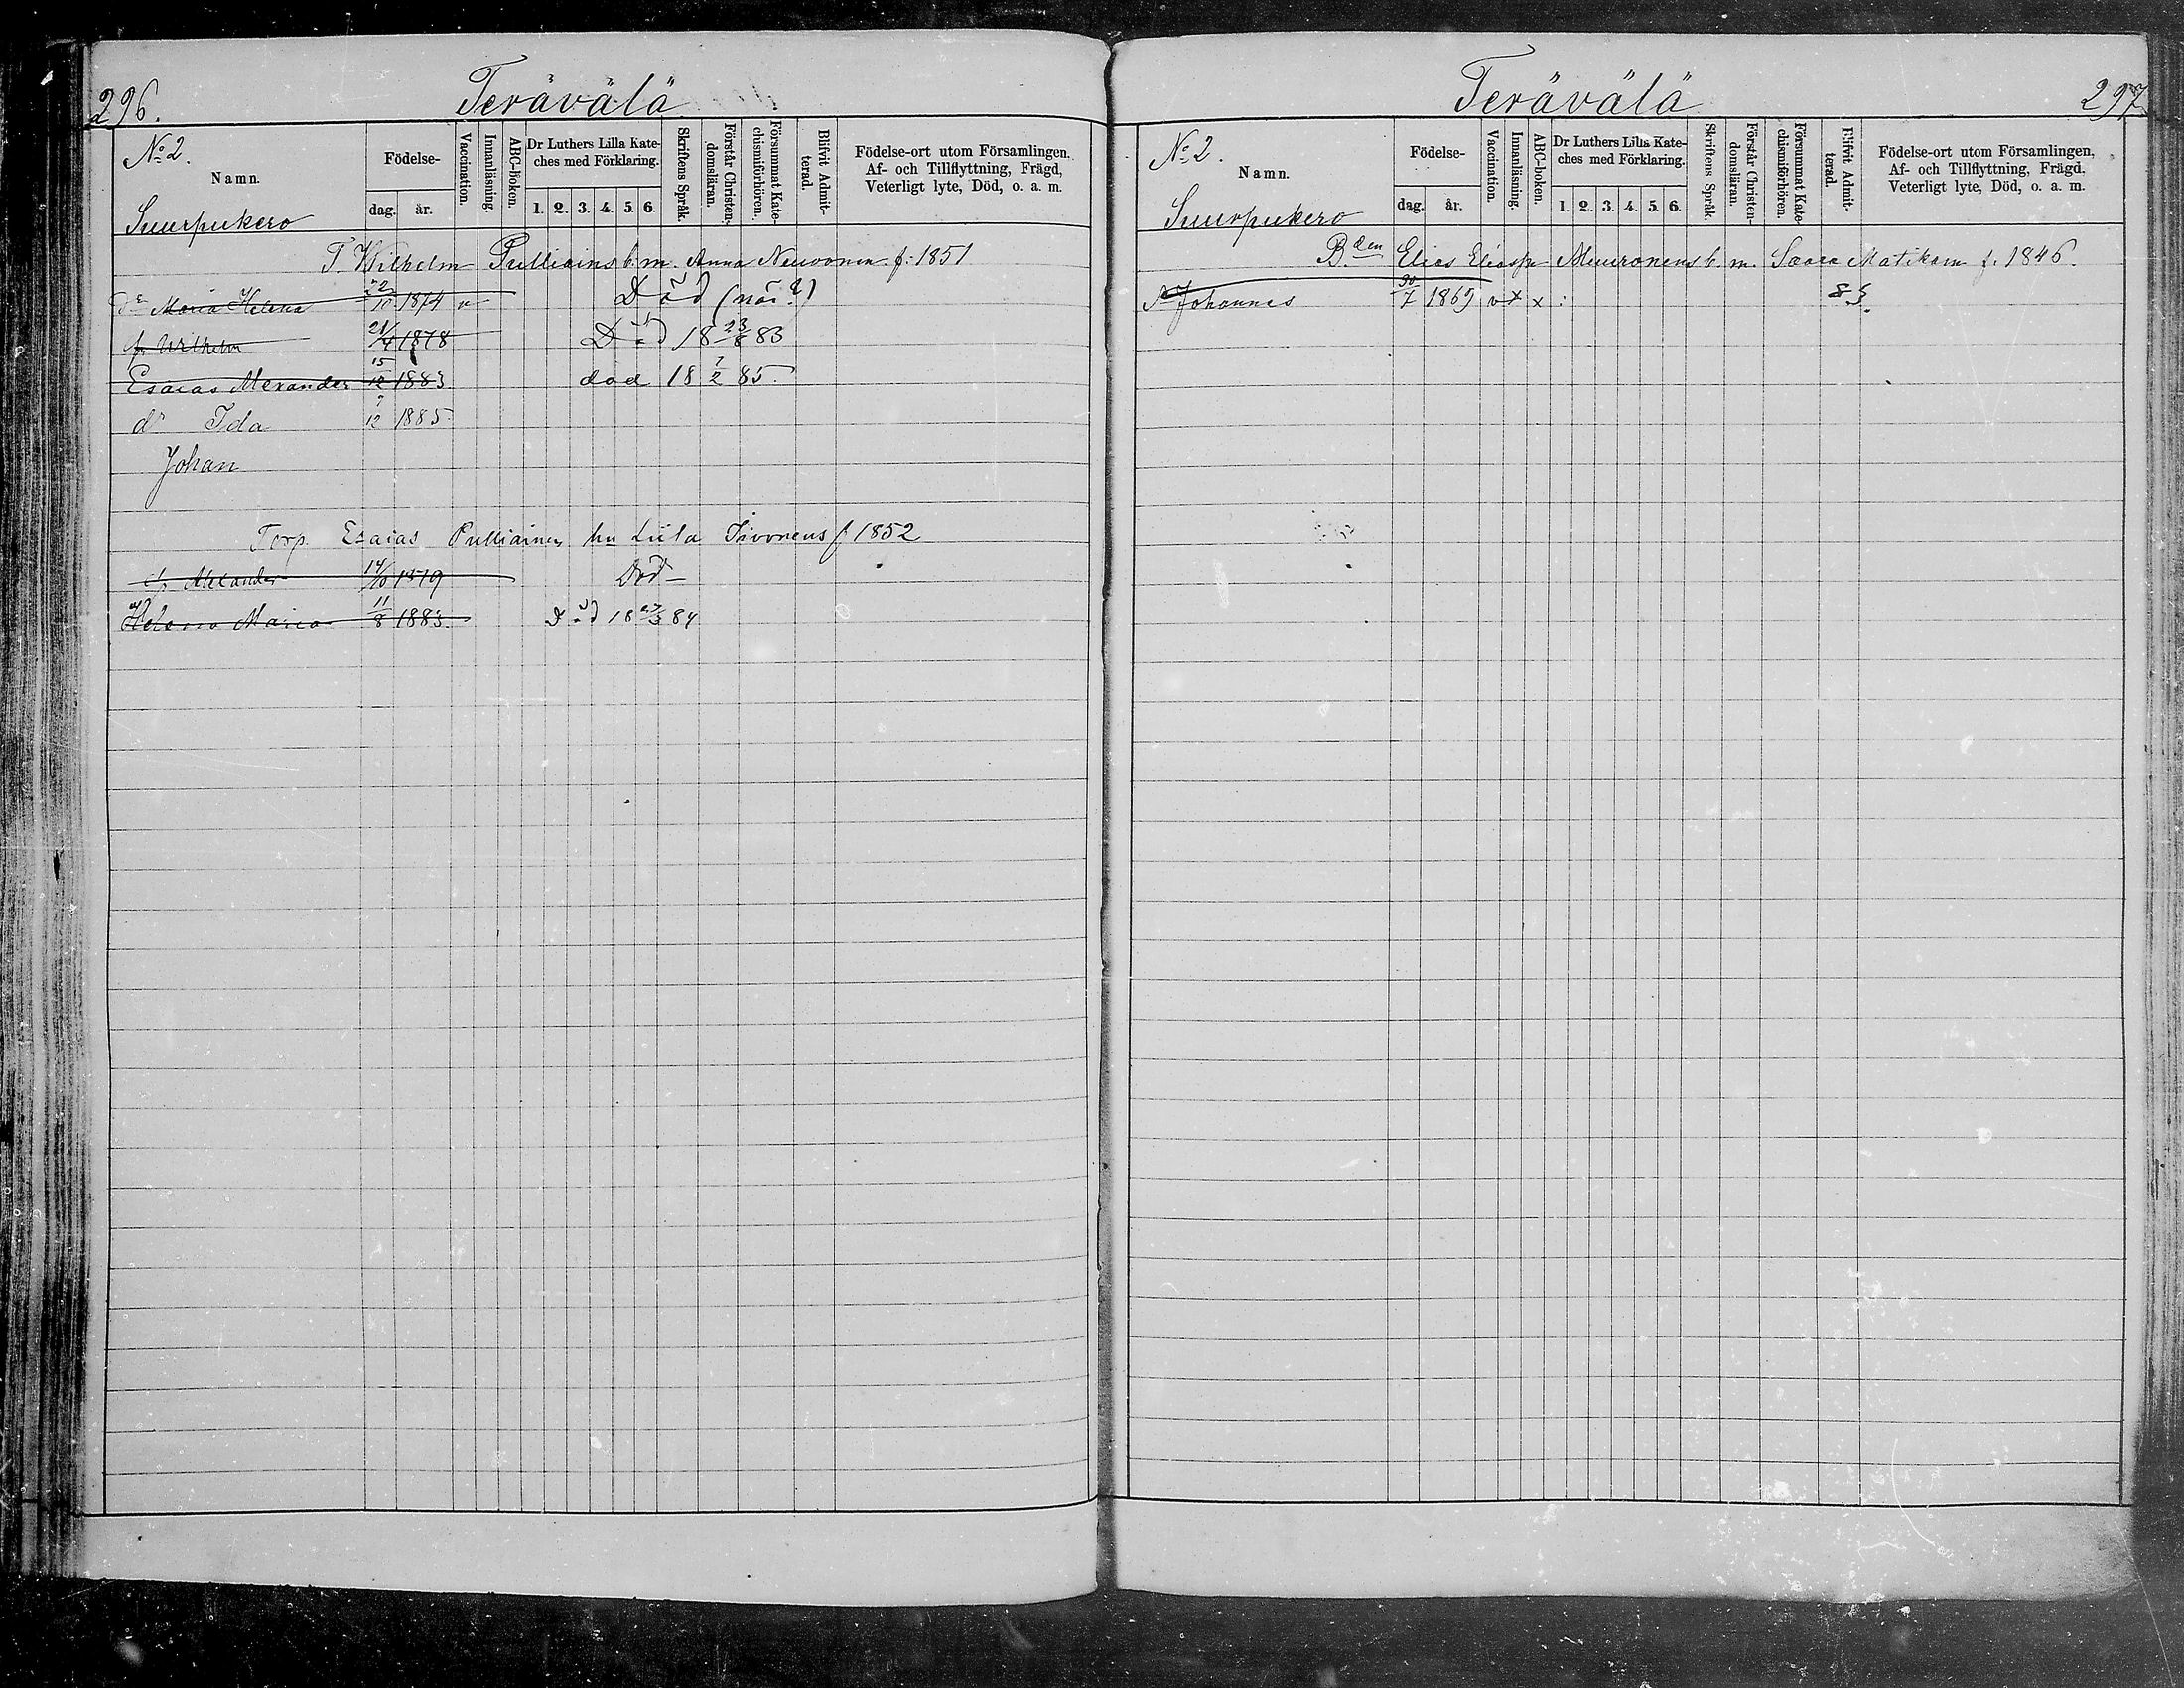 296.
Terävälä
No 2.
Namn.
Suurpukero
Födelse-
dag. år.
Vaccination.
Innanläsning.
ABC-boken.
Dr Luthers Lilla Kate-
ches med Förklaring.
1. 2. 3. 4. 5. 6.
Skriftens Språk.
Förstår Christen-
domsläran.
Försummat Kate-
chismiförhören.
Blifvit Admit-
terad.
Födelse-ort utom Församlingen,
Af- och Tillflyttning, Frägd,
Veterligt lyte, Död, o. a. m.
T. Wilhelm Pulliains b. m. Anna Neuvonen f. 1851
dr Maria Helena 22/10 1874 v Död (när?)
Wilhelm 21/4 1878 Död 18 23/8 83
Esaias Alexander 15/12 1883 död 18 7/2 85.
dr Ida 7/12 1885
Johan
Torp. Esaias Pulliainen hu Liisa f 1852
Alexander 14/10 1879 Död
Helena Maria 11/8 1883. Död 18 84
297
Terävälä
No 2.
Namn.
Suurpukero
Födelse-
dag. år.
Vaccination.
Innanläsning.
ABC-boken.
Dr Luthers Lilla Kate-
ches med Förklaring.
1. 2. 3. 4. 5. 6.
Skriftens Språk.
Förstår Christen-
domsläran.
Försummat Kate-
chismiförhören.
Blifvit Admit-
terad.
Födelse-ort utom Församlingen,
Af- och Tillflyttning, Frägd,
Veterligt lyte, Död, o. a. m.
B.den Elias Eliasson Muuronens b. m. Saara Matikain f. 1846.
Johannes 30/7 1869 v x x :